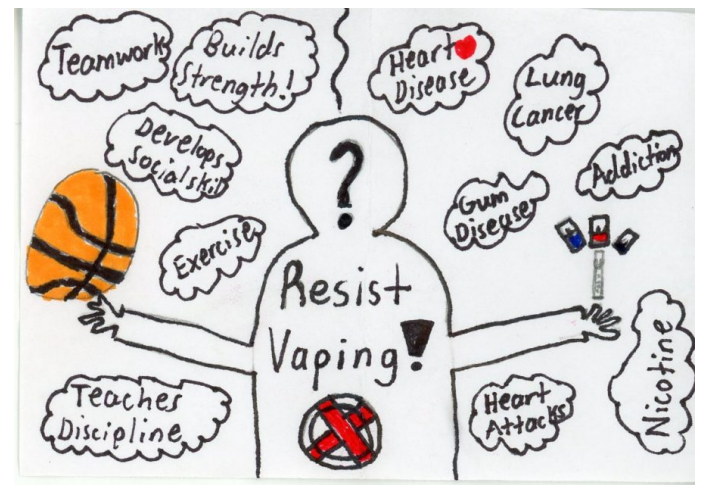 Teamwork
Builds
Strength!
Develops
Social skill
Exercise
Teaches
Discipline
?
Resist
Vaping!
Heart
Disease
Lung
Cancer
Addiction
Gum
Disease
Heart
Attacks
Nicotine